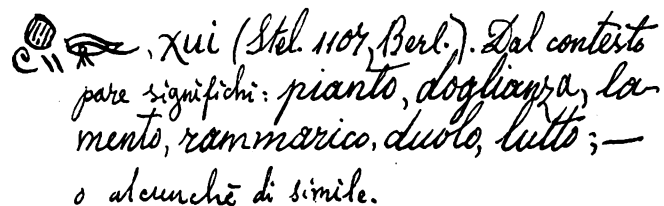 , χui (Stel. 1107, Berl.). Dal contesto
pare significhi: pianto, doglianza, la-
mento, rammarico, duolo, lutto; —
o alcunchè di simile.